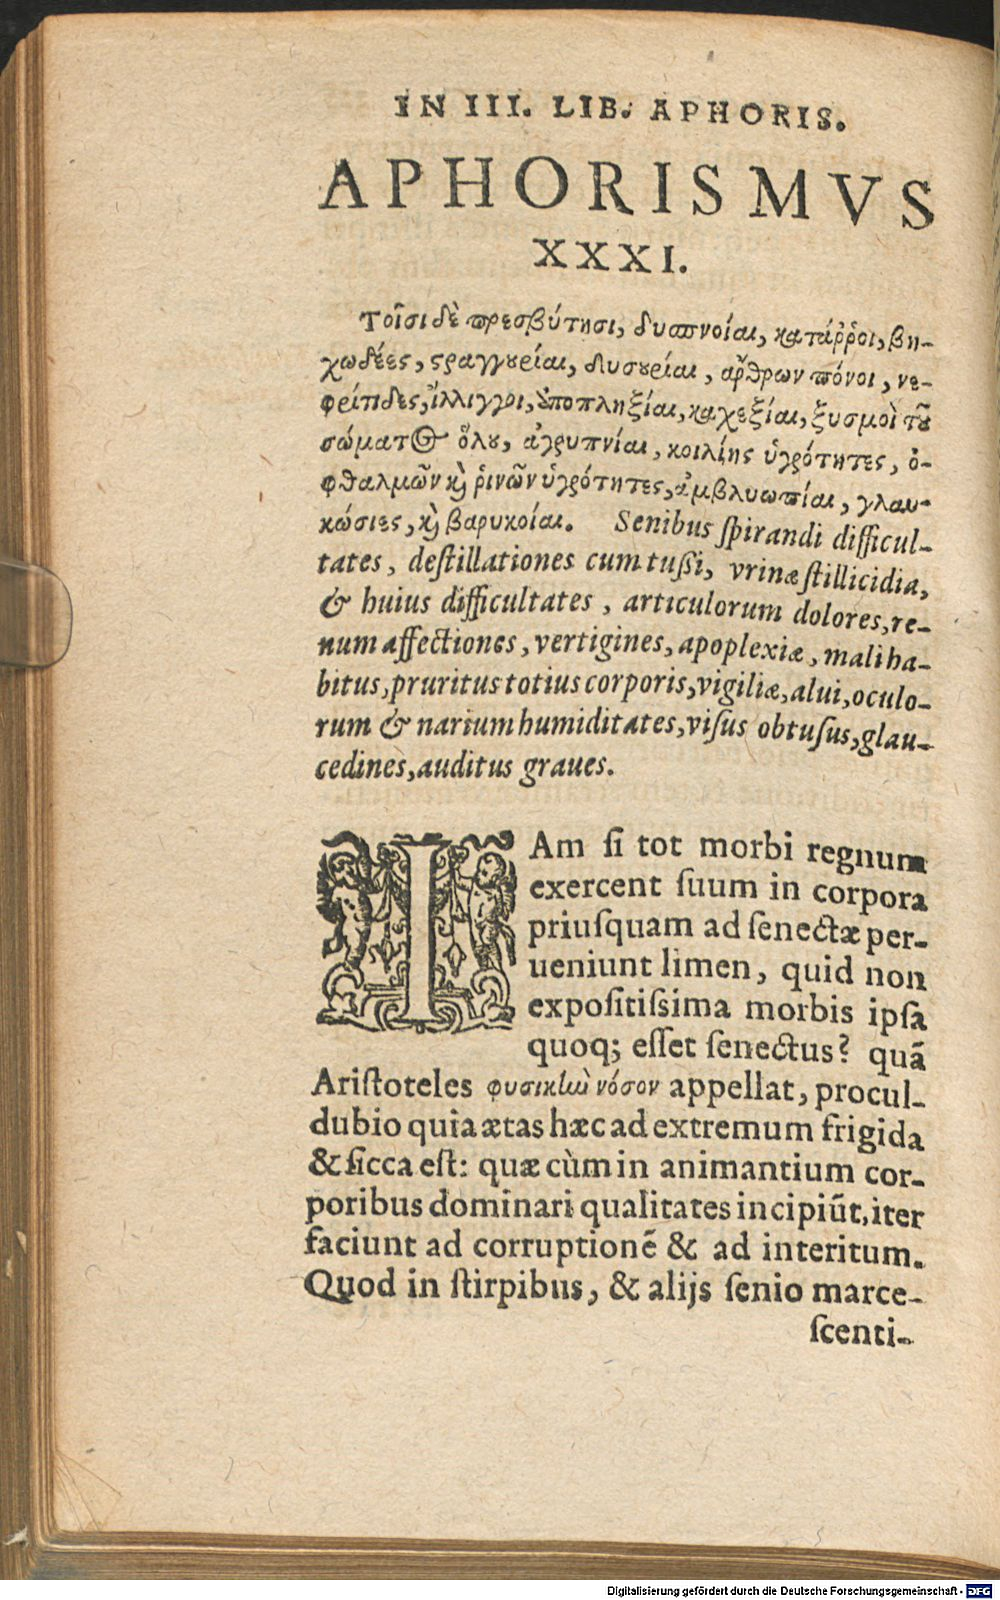 IN III. LIB. APHORIS.
APHORISMVS
XXXI.
Τοῖσι δὲ πρεσβύτῃσι, δυσπνοίαι, κατάῤῥοι, βη-
χώδεες, στραγγουρίαι, δυσουρίαι, ἄρθρων πόνοι, νε-
φρίτιδες, ἴλλιγγοι, ἀποπληξίαι, καχεξίαι, ξυσμοὶ τοῦ
σώματος ὅλου, ἀγρυπνίαι, κοιλίης ὑγρότητες, ὀ-
φθαλμῶν καὶ ῥινῶν ὑγρότητες, ἀμβλυωπίαι, γλαυ-
κώσιες, καὶ βαρυκοίαι. Senibus ſpirandi difficul-
tates, deſtillationes cum tußi, vrinæ ſtillicidia,
& huius difficultates, articulorum dolores, re-
num affectiones, vertigines, apoplexiæ, mali ha-
bitus, pruritus totius corporis, vigiliæ, alui, oculo-
rum & narium humiditates, viſus obtuſus, glau-
cedines, auditus graues.
IAm ſi tot morbi regnum
exercent ſuum in corpora
priuſquam ad ſenectæ per-
ueniunt limen, quid non
expoſitiſsima morbis ipſa
quoq; eſſet ſenectus? quã
Ariſtoteles φυσικὴν νόσον appellat, procul-
dubio quia ætas hæc ad extremum frigida
& ſicca eſt: quæ cùm in animantium cor-
poribus dominari qualitates incipiũt, iter
faciunt ad corruptionẽ & ad interitum.
Quod in ſtirpibus, & alijs ſenio marce-
ſcenti-
Digitalisierung gefördert durch die Deutsche Forschungsgemeinschaft - DFG